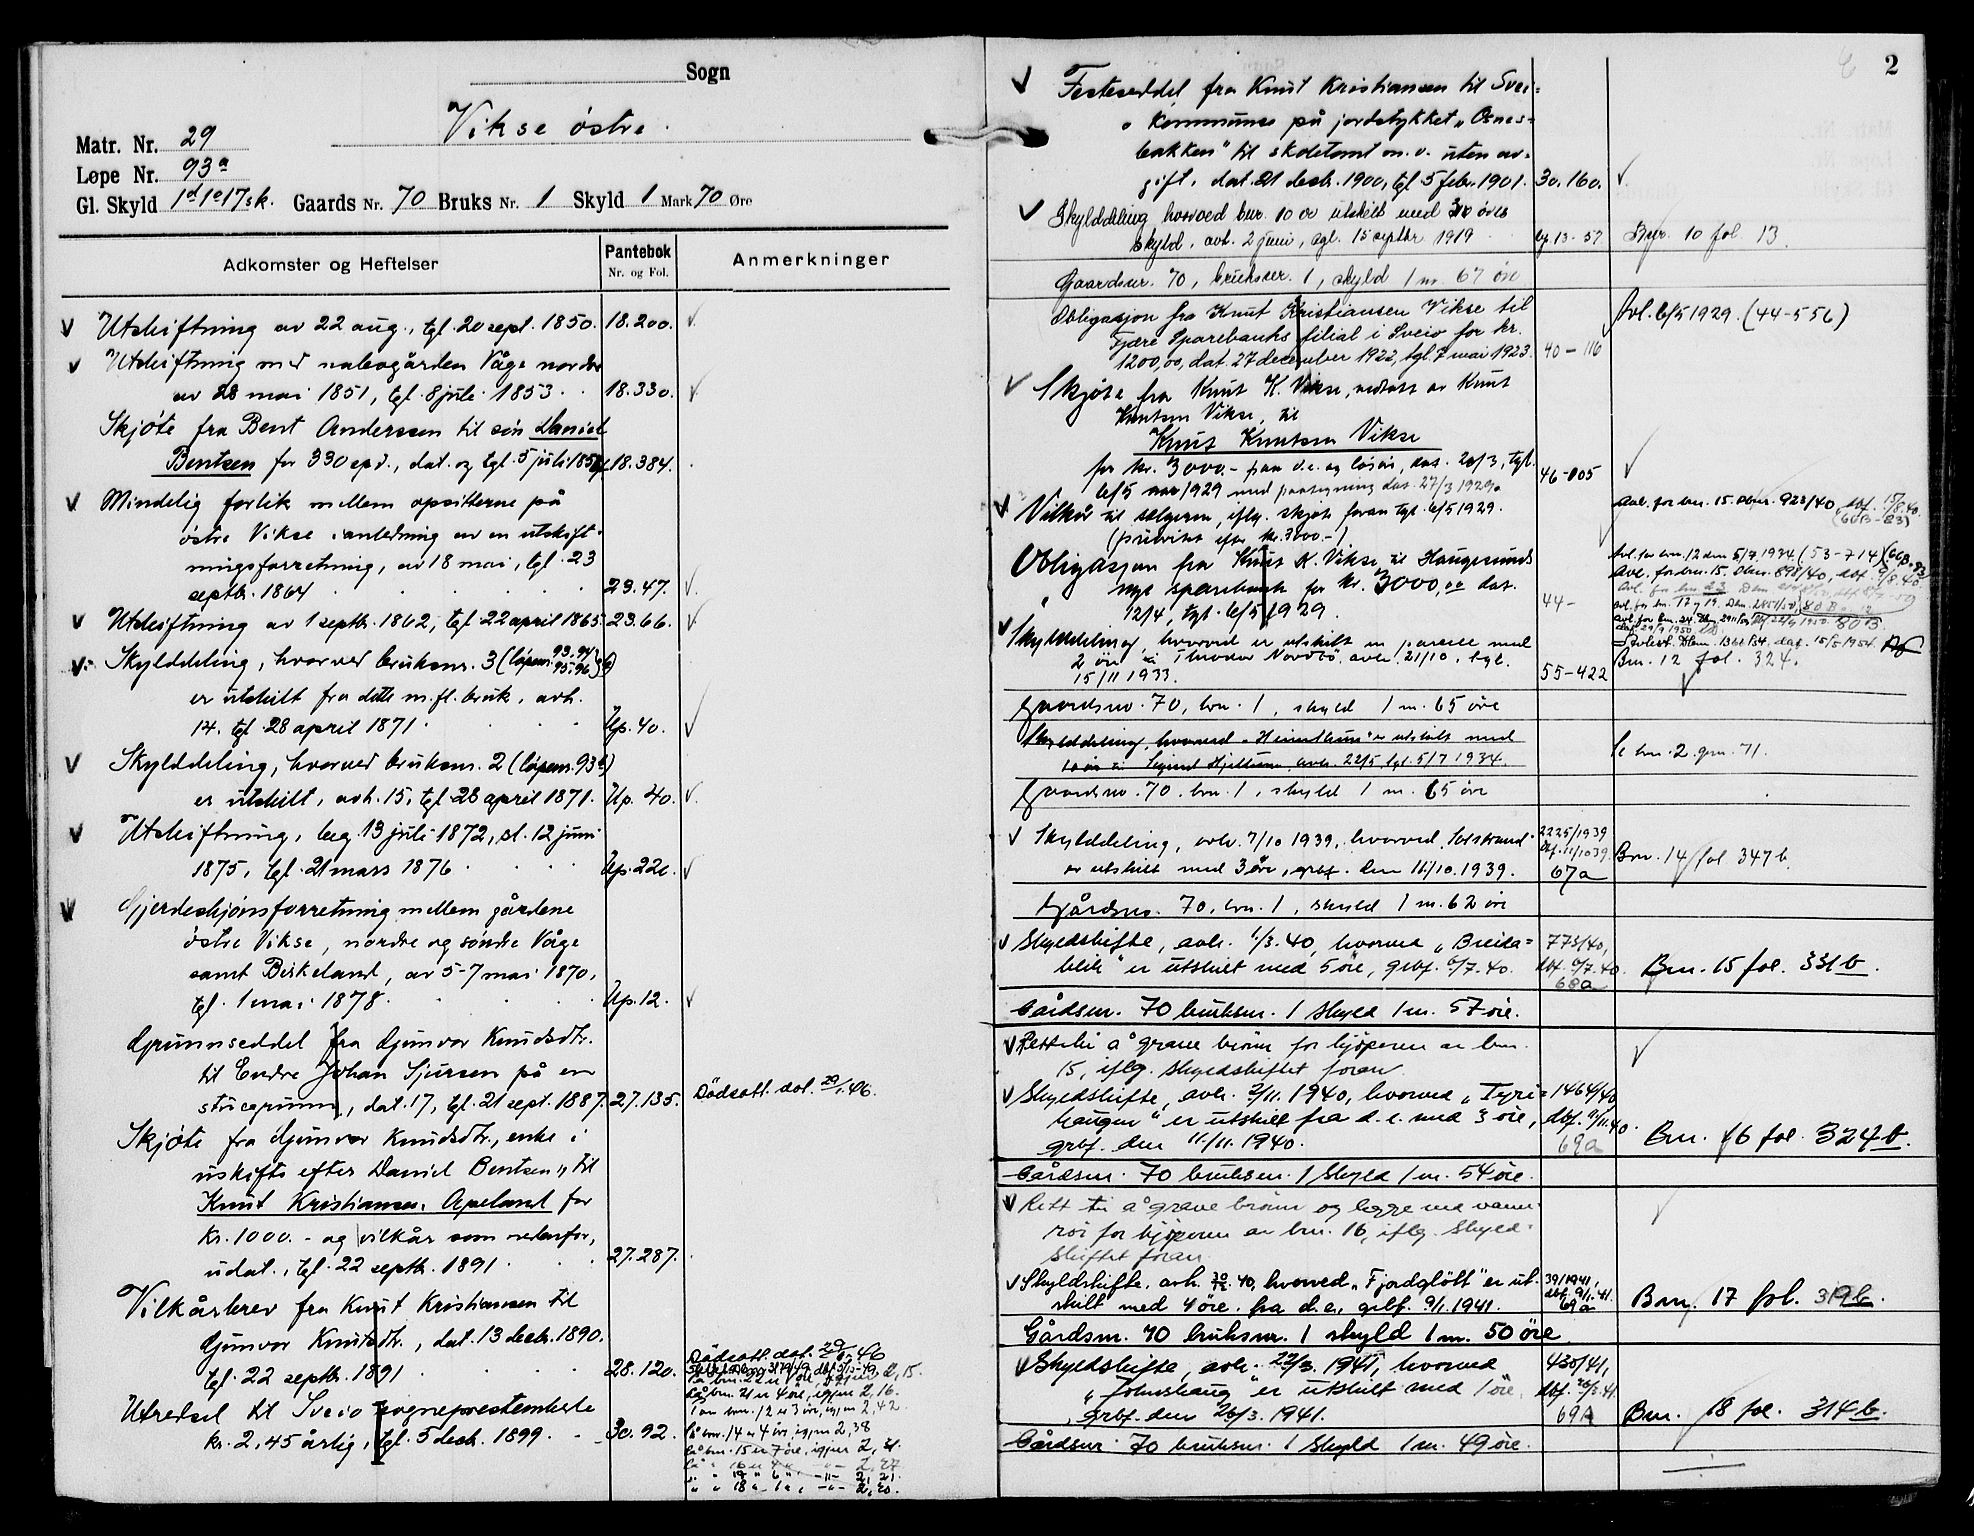 Sogn
Vikse östre.
Matr. Nr. 29
Løpe Nr. 93a
Gl. Skyld 1d 1o 17sk. Gaards Nr. 70 Bruks Nr. 1 Skyld 1 Mark 70 Øre
Adkomster og Heftelser
Pantebok
Nr. og Fol.
Anmerkninger
Utskiftning av 22 aug., tgl. 20 sept. 1850. 18.200.
Utskiftning med nabogården Våge nordre
av 28 mai 1851, tgl. 8 juli 1853. 18.330.
Skjöte fra Bent Anderssen til sön Daniel
Bentsen for 330 spd., dat. og tgl. 5 juli 18 18.384.
Mindelig forlik mellem opsitterne på
östre Vikse i anledning av en utskift-
ningsforretning, av 18 mai, tgl. 23
septbr. 1864 23.47.
Utskiftning av 1 septbr. 1862, tgl. 22 april 1865 23.66.
Skylddeling, hvorved bruksnr. 3 (löpenr. 93. 94 95. 96
er utskilt fra dette m.fl. bruk, avh.
14. tgl. 28 april 1871. Up. 40.
Skylddeling, hvorved bruksnr. 2 (löpenr. 93 b)
er utskilt, avh. 15, tgl. 28 april 1871. Up. 40.
Utskiftning, beg. 13 juli 1872, sl. 12 juni
1875, tgl. 21 mars 1876 Up. 22
Gjerdeskjönsforretning mellem gårdene
östre Vikse, nordre og söndre Våge
samt Birkeland, av 5-7 mai 1870,
tgl. 1 mai 1878. Up. 12.
Grunnseddel fra Gjunvor Knudsdtr.
til Endre Johan Sjursen på en
stuegrunn, dat. 17, tgl. 21 sept. 1887. 27.135. Dödsatt. dat. 29/1.46.
Skjöte fra Gjunvor Knudsdtr., enke i
uskifte efter Daniel Bentsen, til
Knut Kristiansen Apeland for
kr. 1000.- og vilkår som nedenfor,
udat., tgl. 22 septb. 1891 27.287.
Vilkårsbrev fra Knut Kristiansen til
Gjunvor Knutsdtr., dat. 13 decbr. 1890.
tgl. 22 septbr. 1891 28.120. Dödsatt. dat. 29/1 46
Utredsel til Sveio sogneprestembede
kr. 2,45 årlig, tgl. 5 decb. 1899. 30.92.
På bnr. 21 er 4 öre, igjen 2,16.
bnr. 12 er 3 öre, igjen 2,42
På bnr. 14 er 4 öre, igjen 2,38
På bnr. 15 er 7 öre, igjen 2,31.
" " 16 er 4 " -"- 2,27
" " 17 " 6 " -"- 2,21.
" " 18 " 1 " -"- 2,20.
2
Festeseddel fra Knut Kristiansen til Svei-
o kommune på jordstykket "Osnes-
bakken" til skoletomt m.v. uten av-
gift, dat. 21 decb. 1900, tgl. 5 febr. 1901. 30.160.
Skylddeling hvorved bnr. 10 er utskilt med 3 öres
skyld, avh. 2 juni, tgl. 15 septbr. 1919 13-57 Bnr. 10 fol. 13.
Gaardsnr. 70, bruksnr. 1, skyld 1 m. 67 öre
Obligasjon fra Knut Kristiansen Vikse til
Fjære Sparebanks filial i Sveio for kr.
1200,00, dat. 27 december 1922, tgl. 7 mai 1923. 40-116 Avl. 6/5 1929. (44-556)
Skjöte fra Knut K. Vikse, vedtatt av Knut
Knutsen Vikse, til
Knut Knutsen Vikse
for kr. 3000.- paa d.e. og lösöre, dat. 20/3, tgl.
6/5 1929 med paategning dat. 27/3 1929. 46-805
Vilkår til selgeren, iflg. skjöte foran tgl. 6/5 1929.
(prioritet efter kr. 3000.-)
Avl. for bnr. 15. Dbnr. 923/40, dbf. 15/8.40.
Obligasjon fra Knut K. Vikse til Haugesunds
nye sparebank for kr. 3000,00 dat.
12/4, tgl. 6/5 1929. 44-
Avl. for bnr. 12 den 5/7 1934 (53-714)
Avl. for bnr. 15. Dbnr. 898/40, dbf. 9/8.40.
Skylddeling, hvorved er utskilt en parsell med
2 öre til Theodor Nordbö, avh. 21/10, tgl.
15/11 1933. 55-422 Bnr. 12 fol. 324.
Gaardsno. 70, bnr. 1, skyld 1 m. 65 öre
Skylddeling, hvorved "Heimthun" er utskilt med
10 öre til Sigurd Hjelttun, avh. 22/5, tgl. 5/7 1934. Se bnr. 2. gnr. 71.
Gaardsno. 70, bnr. 1, skyld 1 m. 65 öre
Skylddeling, avh. 7/10 1939, hvorved "Solstrand"
er utskilt med 3 öre, grbf. den 11/10.1939. 2225/1939 Dbf. 11/10 39. 67a Bnr. 14 fol 347 b.
Gårdsno. 70, bnr. 1, skyld 1 m. 62 öre
Skyldskifte, avh. 1/3.40, hvorved "Breida-
blik" er utskilt med 5 öre, grbf. 6/7.40. 773/40, dbf. 6/7.40. 68a Bnr. 15 fol. 331 b.
Gårdsnr. 70 bruksnr. 1 skyld 1 m. 57 öre.
Rett til å grave brönn for kjöperen av bnr.
15, iflg. skyldskiftet foran.
Skyldskifte, avh. 2/11.1940, hvorved "Tyri-
haugen" er utskilt fra d.e. med 3 öre,
grbf. den 11/11.1940. 1464/40 dbf. 11/11.40. 69a Bnr. 16 fol. 324 b.
Gårdsnr. 70 bruksnr. 1 skyld 1 m. 54 öre.
Rett til å grave brönn og legge ned vann-
rör for kjöperen av bnr. 16, iflg. skyld-
skiftet foran.
Skyldskifte, avh. 30/12.40, hvorved "Fjordglött" er ut-
skilt med 4 öre. fra d.e., grbf. 9/1.1941. 39/1941, dbf. 9/1.41. 69a Bnr. 17 fol. 319 b.
Gårdsnr. 70 bruksnr. 1 skyld 1 m. 50 öre
Skyldskifte, avh. 22/3.1941, hvorved
"Solmshaug" er utskilt med 1 öre,
grbf. den 26/3.1941. 430/41, dbf. 26/3.41. 69A Bnr. 18 fol. 314 b.
Gårdsnr. 70 bruksnr. 1 skyld 1 m. 49 öre.